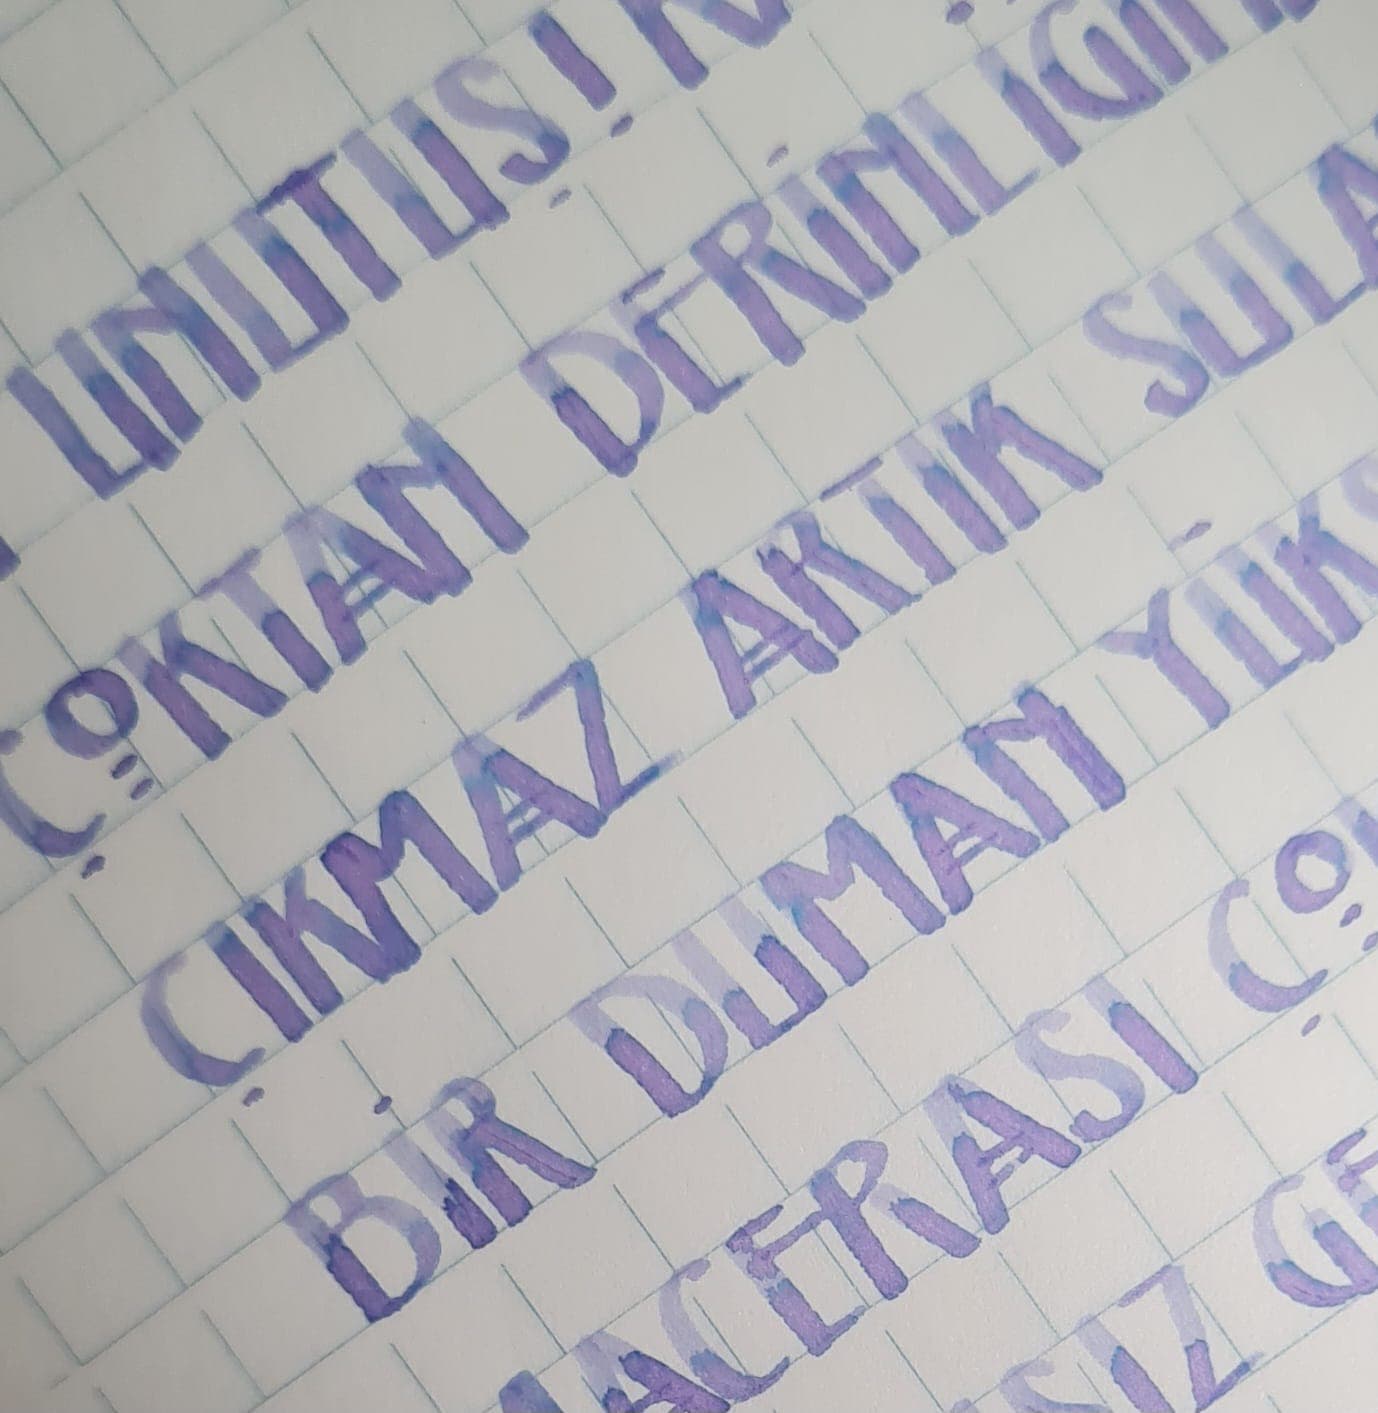 UNUTUŞ!
ÇOKTAN DERİNLİĞİ
ÇIKMAZ ARTIK SULA
BİR DUMAN YÜKS
MACERASI ÇO
SIZ GE